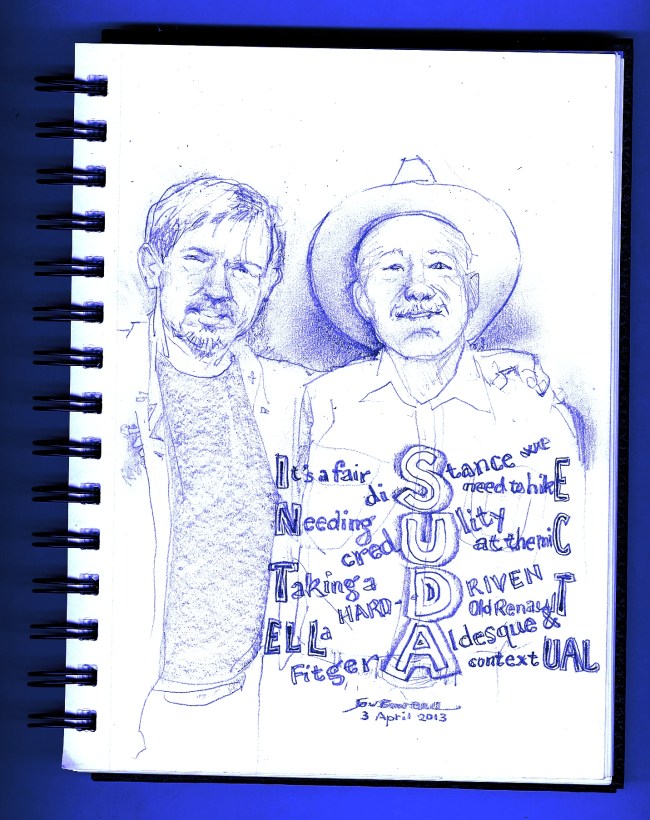 It's a fair diStance we need to hikE
Needing credUlity at the miC
Taking a HARD-DRIVEN Old RenaulT
ELLa FitgerAldesque & contextUAL
3 April 2013